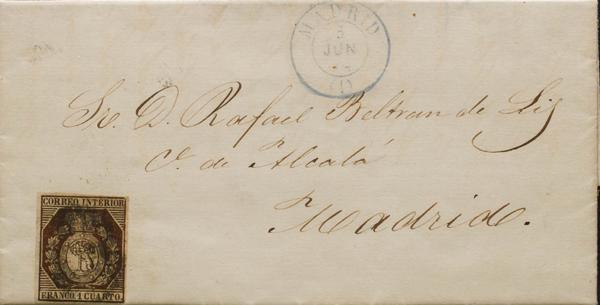 MADRID
3
JUN
(1)
Sr. D. Rafael Beltran de Lis
C. de Alcalá
Madrid.
CORREO INTERIOR
FRANCO 1 CUARTO.